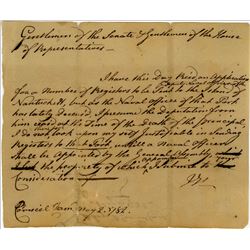 Gentlemen of the Senate & Gentlemen of the House
of Representatives —
I have this Day Recd an Application
for a Number of Registers to be Sent to the Island of
Nantuckett, but as the Naval officer of that Port
has lately deceased & presume the Deputation
upon the Death of the Principal,
I do not look upon my self Justifiable in Sending
Registers to untill a Naval officer
shall be appointed by the General Assembly
the propriety of which I submit to
Consideration
Council Cham. May 2. 1782.